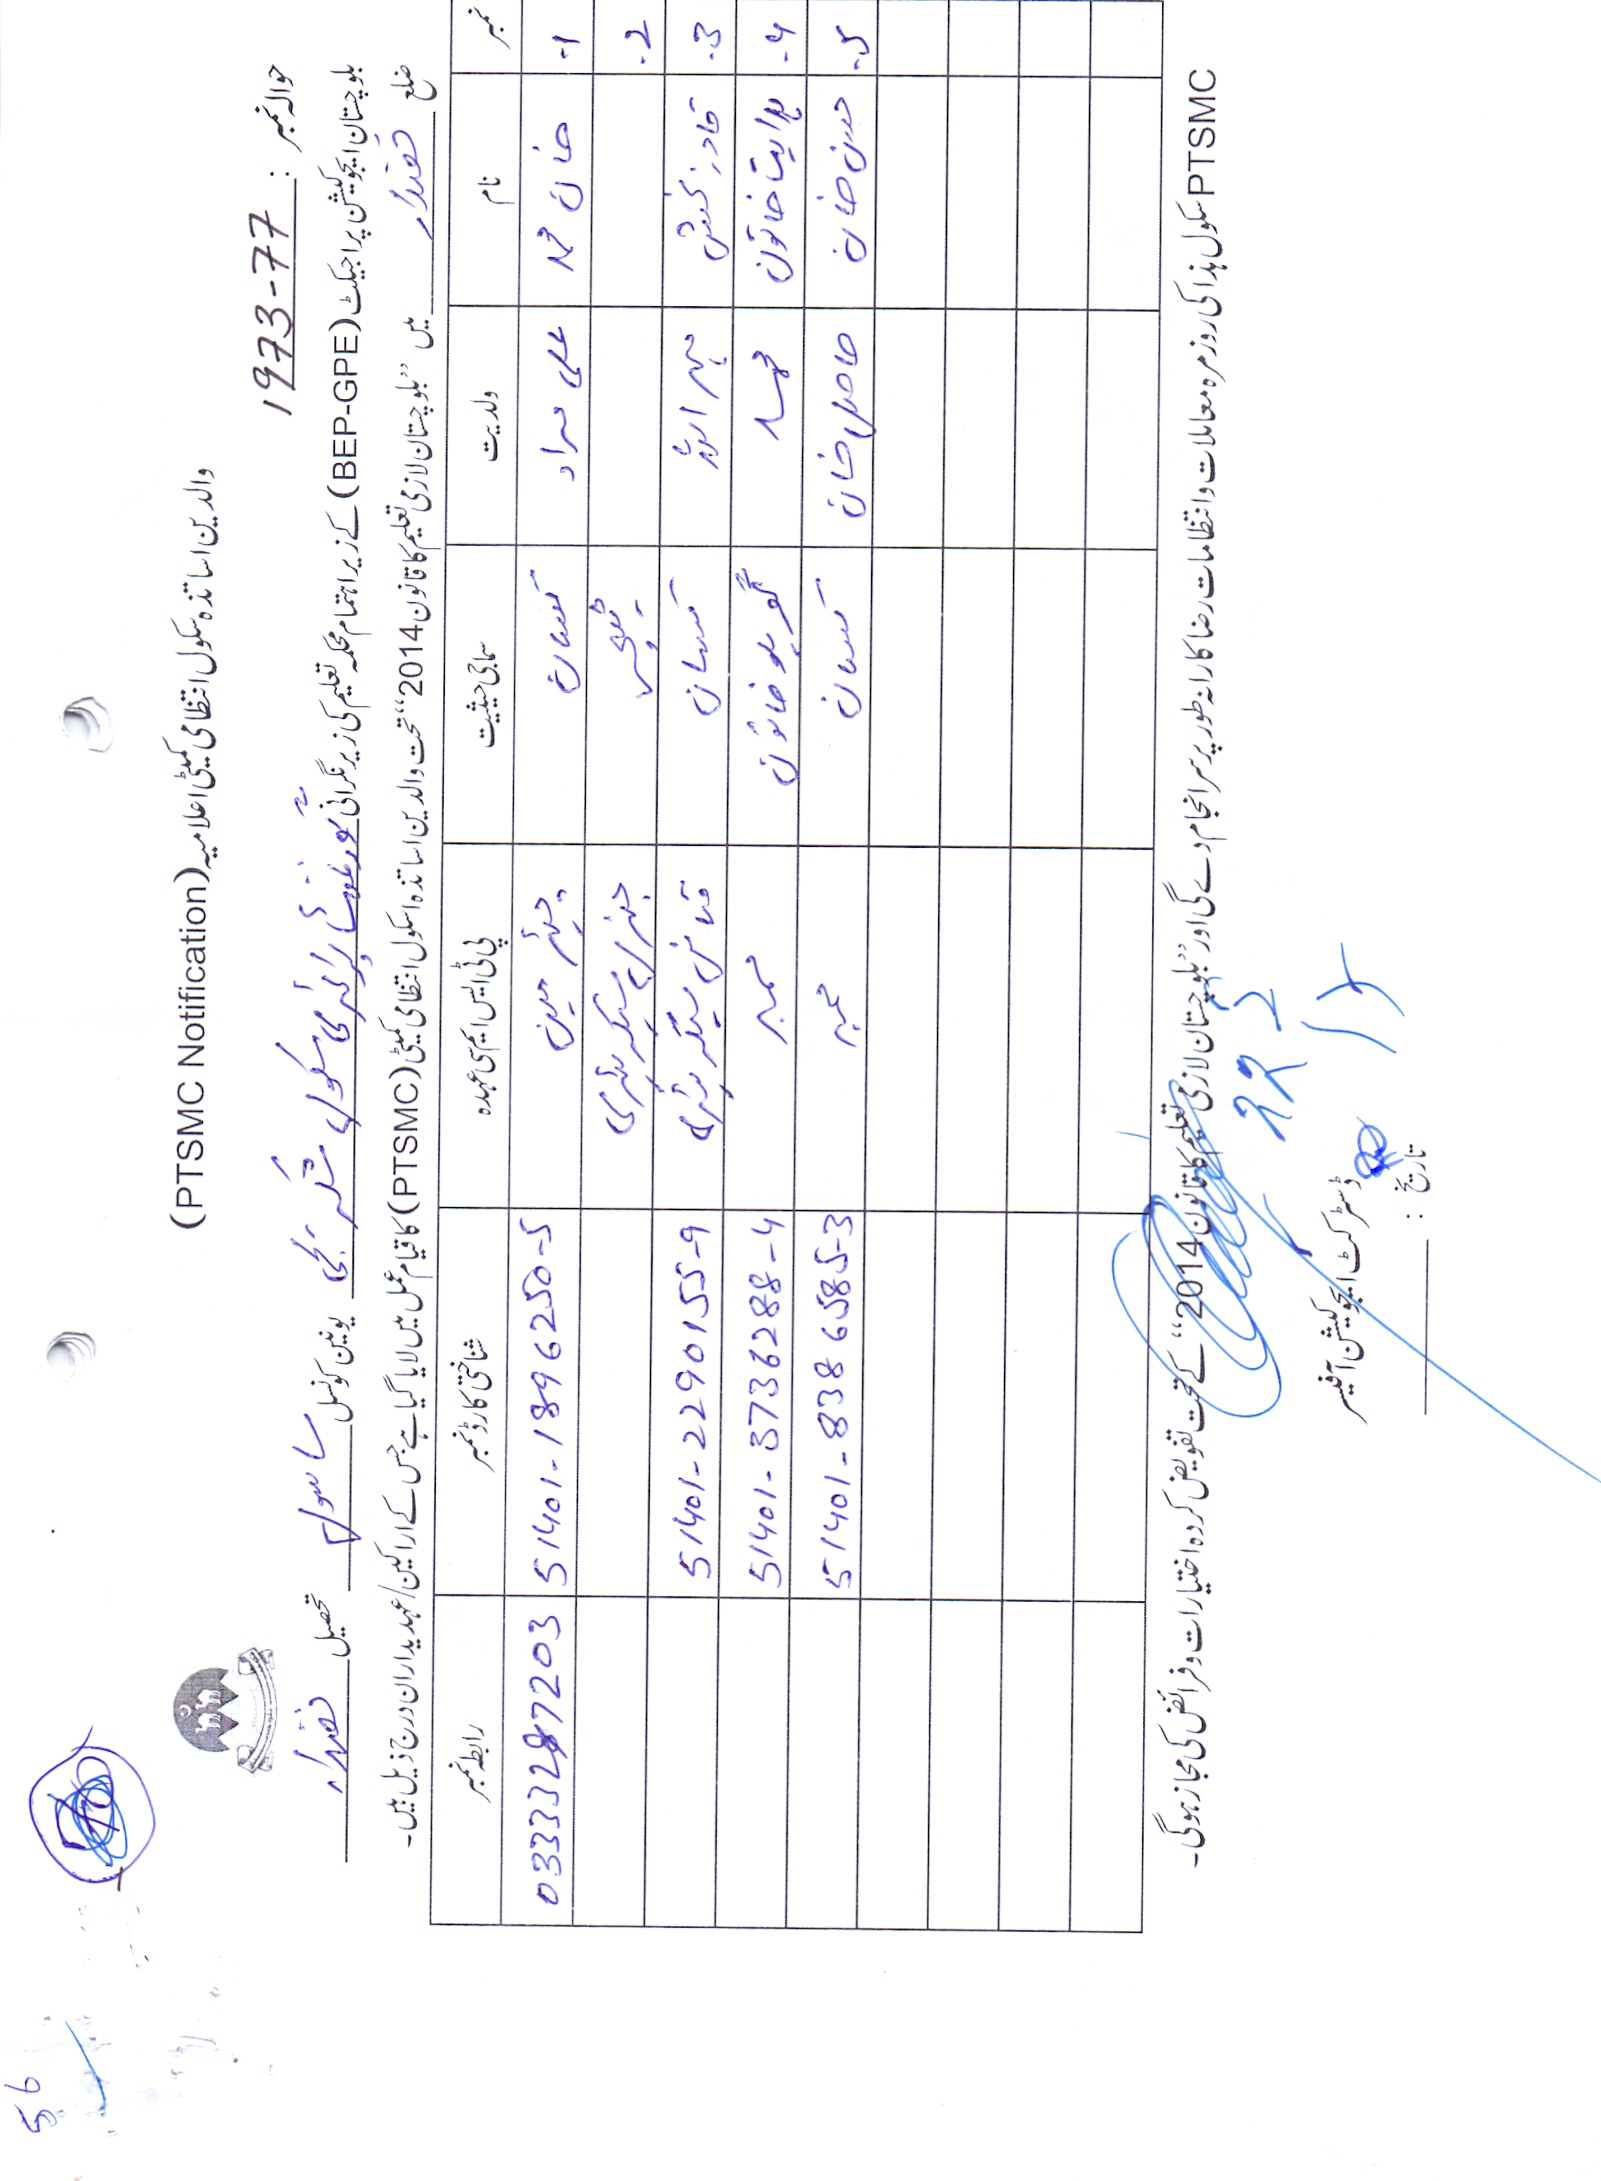 56
والدین اساتذہ سکول انتظامی کمیٹی اعلامیہ (PTSMC Notification)
حوالہ نمبر : 1973-77
بلوچستان ایجوکیشن پراجیکٹ (BEP-GPE) کے زیر اہتمام محکمہ تعلیم کی زیر نگرانی گورنمنٹ پرائمری سکول یونین کونسل ساسول تحصیل خضدار
ضلع خضدار میں ”بلوچستان لازمی تعلیم کا قانون 2014“ تحت والدین اساتذہ اسکول انتظامی کمیٹی (PTSMC) کا قیام عمل میں لایا گیا ہے جس کے اراکین/عہدیداران درج ذیل ہیں۔
نمبر نام ولدیت سماجی حیثیت پی ٹی ایس ایم سی عہدہ شناختی کارڈ نمبر رابطہ نمبر
1- خان محمد علی مراد کسان چیئرمین 51401-1896250-5 03333287203
2- ٹیچر جنرل سیکریٹری
3- قادر بخش کسان فنانس سیکریٹری 51401-2290155-9
4- ہدایت خاتون محمد گھریلو خاتون ممبر 51401-3736288-4
5- خان حاصل خان کسان ممبر 51401-8386585-3
PTSMC سکول ہذا کی روزمرہ معاملات و انتظامات رضاکارانہ طور پر سرانجام دے گی اور ”بلوچستان لازمی تعلیم کا قانون 2014“ کے تحت تفویض کردہ اختیارات و فرائض کی مجاز ہوگی۔
ڈسٹرکٹ ایجوکیشن آفیسر
تاریخ :